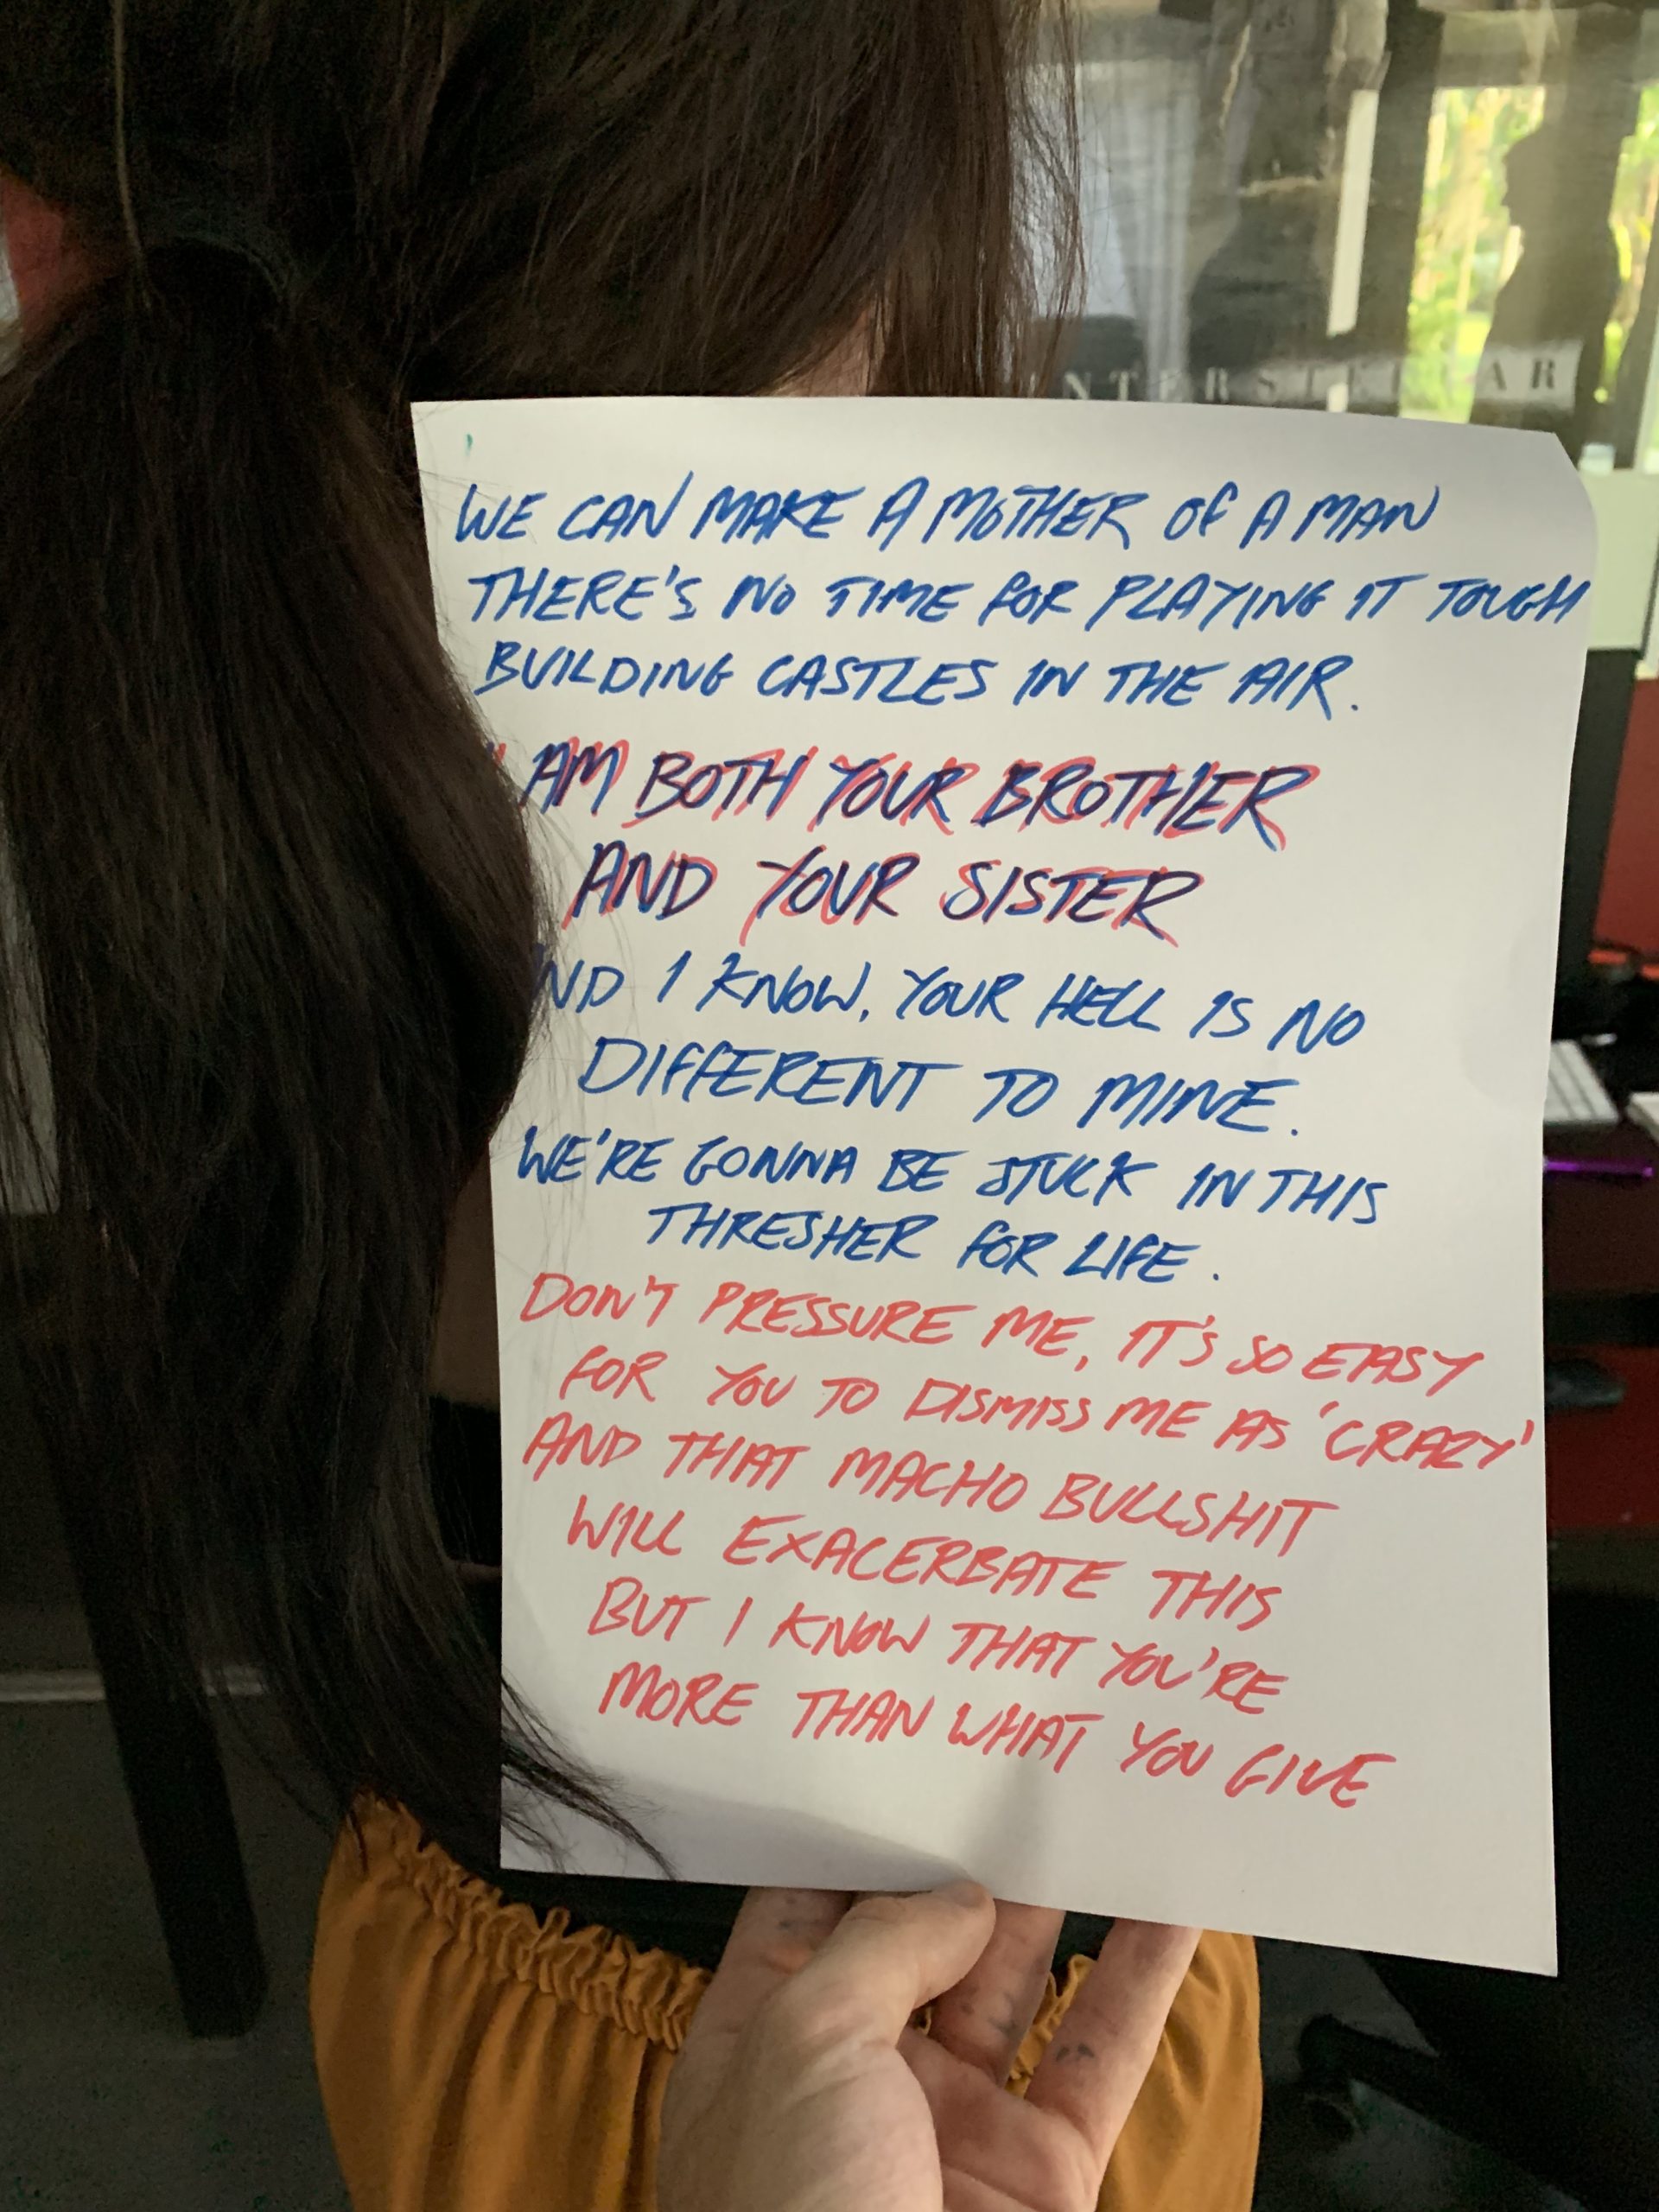 INTERSTELLAR
WE CAN MAKE A MOTHER OF A MAN
THERE'S NO TIME FOR PLAYING IT TOUGH
BUILDING CASTLES IN THE AIR.
I AM BOTH YOUR BROTHER
AND YOUR SISTER
AND I KNOW, YOUR HELL IS NO
DIFFERENT TO MINE.
WE'RE GONNA BE STUCK IN THIS
THRESHER FOR LIFE.
DON'T PRESSURE ME, IT'S SO EASY
FOR YOU TO DISMISS ME AS 'CRAZY'
AND THAT MACHO BULLSHIT
WILL EXACERBATE THIS
BUT I KNOW THAT YOU'RE
MORE THAN WHAT YOU GIVE